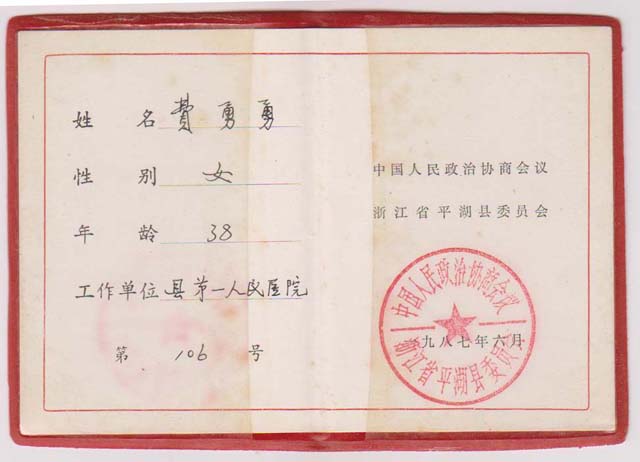 姓 名 费 勇 勇
性 别 女
年 龄 38
工作单位 县第一人民医院
第 106 号
中国人民政治协商会议
浙江省平湖县委员会
一九八七年六月
中国人民政治协商会议
浙江省平湖县委员会